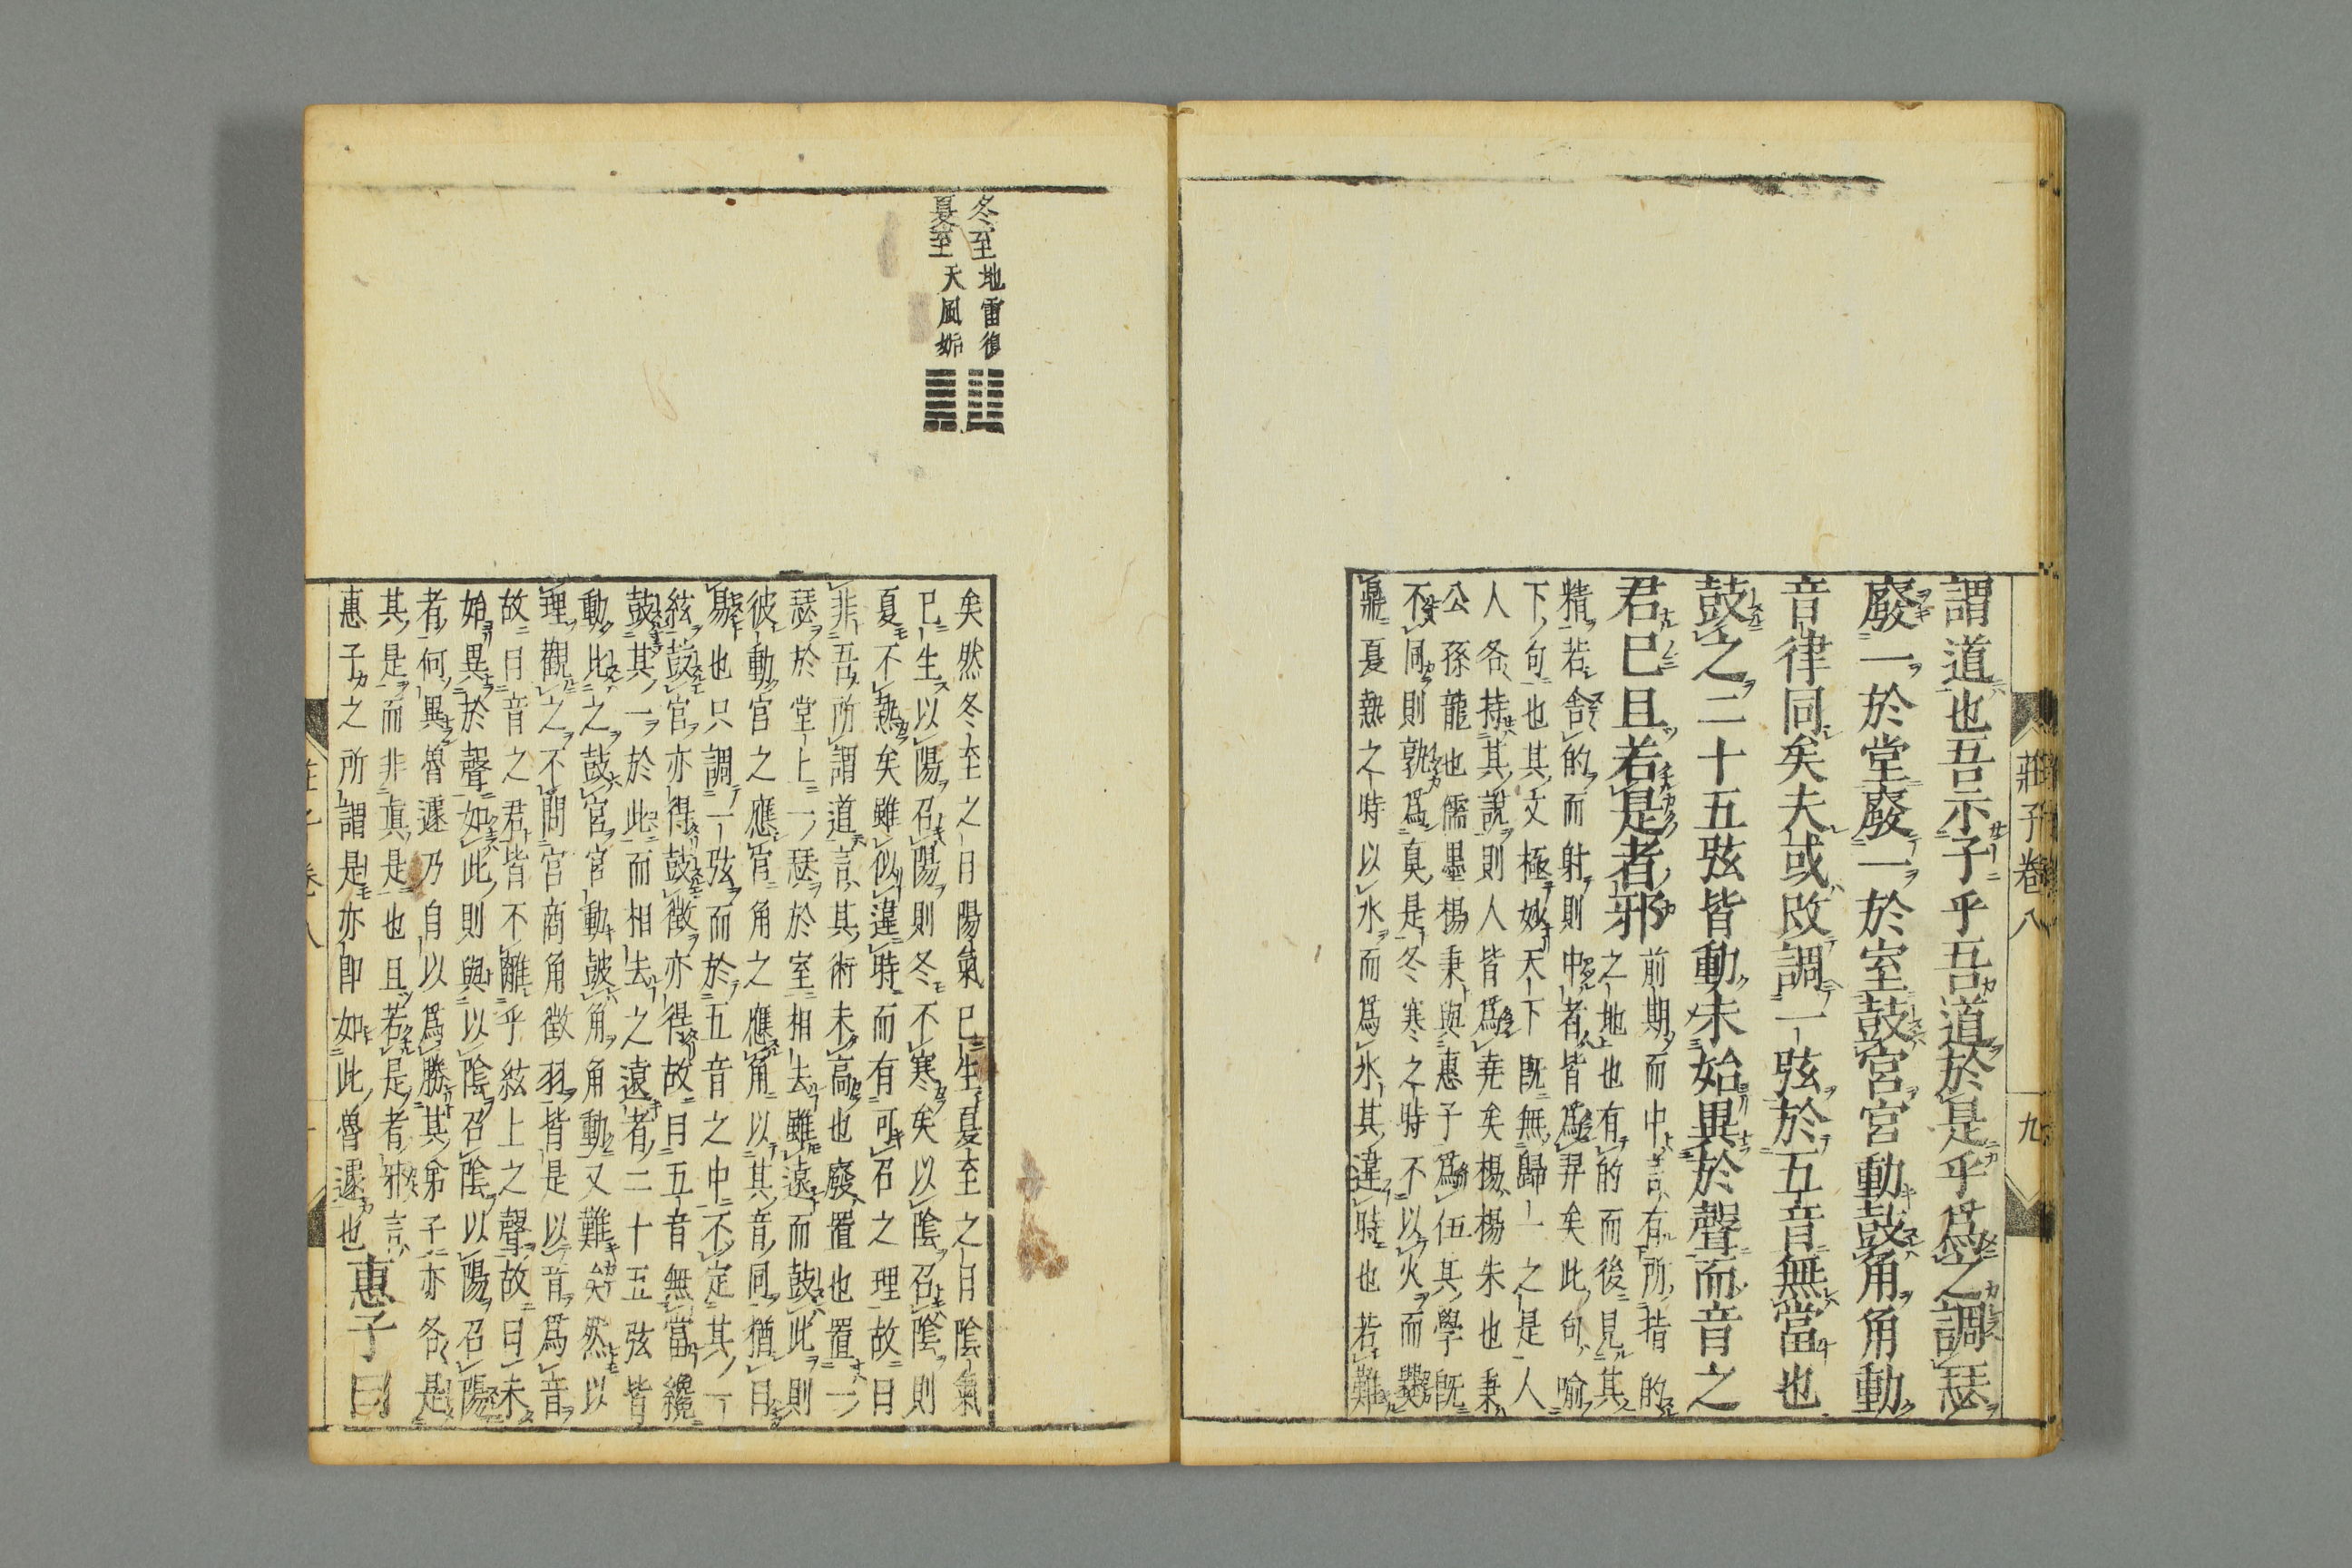 謂道也吾示子乎吾道於是乎爲之調瑟
廢一於堂廢一於室鼓宮宮動鼓角角動
音律同矣夫或改調一弦於五音無當也
鼓之二十五弦皆動未始異於聲而音之
君已且若是者邪
前期而中言有所指的
之地也有的而後見其
精若舍的而射則中者皆爲羿矣此句喻
下句也其文極妙天下旣無歸一之是人
人各持其說則人皆爲堯矣楊楊朱也秉
公孫龍也儒墨楊秉與惠子爲伍其學旣
不同則孰爲眞是冬寒之時不以火而爨
鼎夏熱之時以水而爲氷其違時也若難
莊子卷八
九
冬至地雷復
夏至天風姤
矣然冬至之日陽氣已生夏至之日陰氣
已生以陽召陽則冬不寒矣以陰召陰則
夏不熱矣雖似違時而有可召之理故曰
非吾所謂道言其術未高也廢置也置一
瑟於堂上一瑟於室相去雖遠而鼓此則
彼動宮之應宮角之應角以其音同猶曰
易也只調一弦而於五音之中不定其一
絃鼓宮亦得鼓徵亦得故曰五音無當纔
鼓其一於此而相去之遠者二十五弦皆
動此之鼓宮宮動鼓角角動又難矣然以
理觀之不問宮商角徵羽皆是以音爲音
故曰音之君皆不離乎絃上之聲故曰未
始異於聲如此則與以陰召陰以陽召陽
者何異魯遽乃自以爲勝其弟子亦各是
其是而非眞是也且若是者邪言
惠子之所謂是亦卽如此魯遽也惠子曰